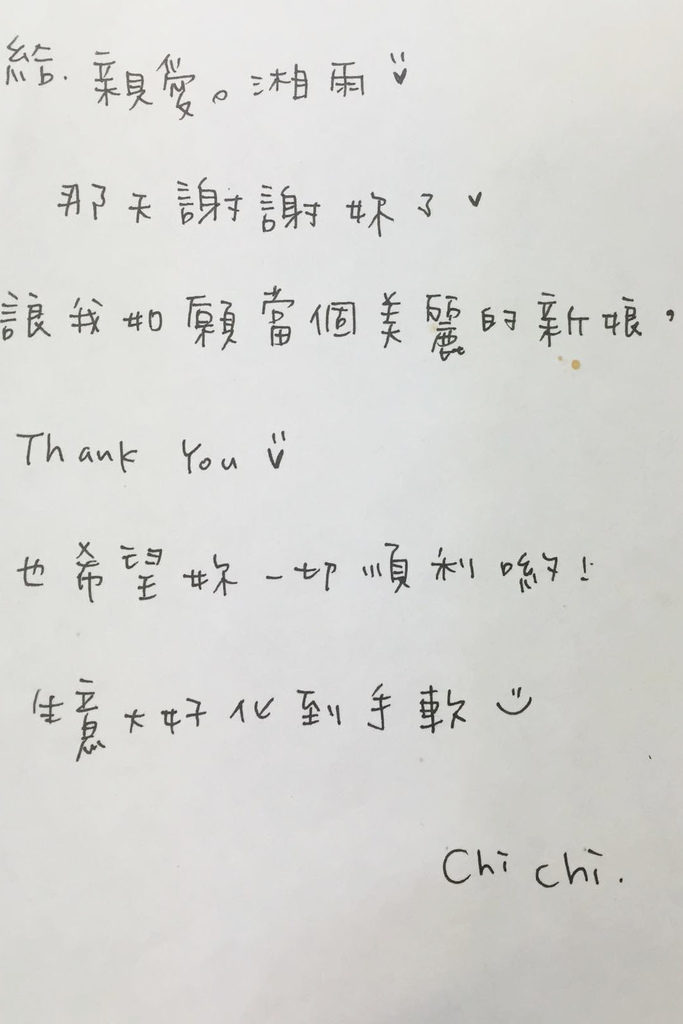 給. 親愛。湘雨
那天謝謝妳了
讓我如願當個美麗的新娘，
Thank You
也希望妳一切順利喲！
生意大好化到手軟
Chi chi.